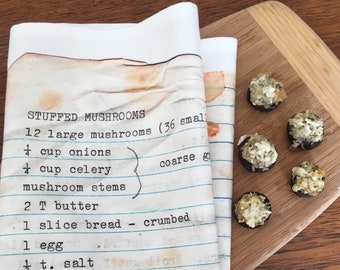 STUFFED MUSHROOMS
12 large mushrooms (36 small
¼ cup onions
¼ cup celery coarse
mushroom stems
2 T butter
1 slice bread - crumbed
1 egg
t. salt